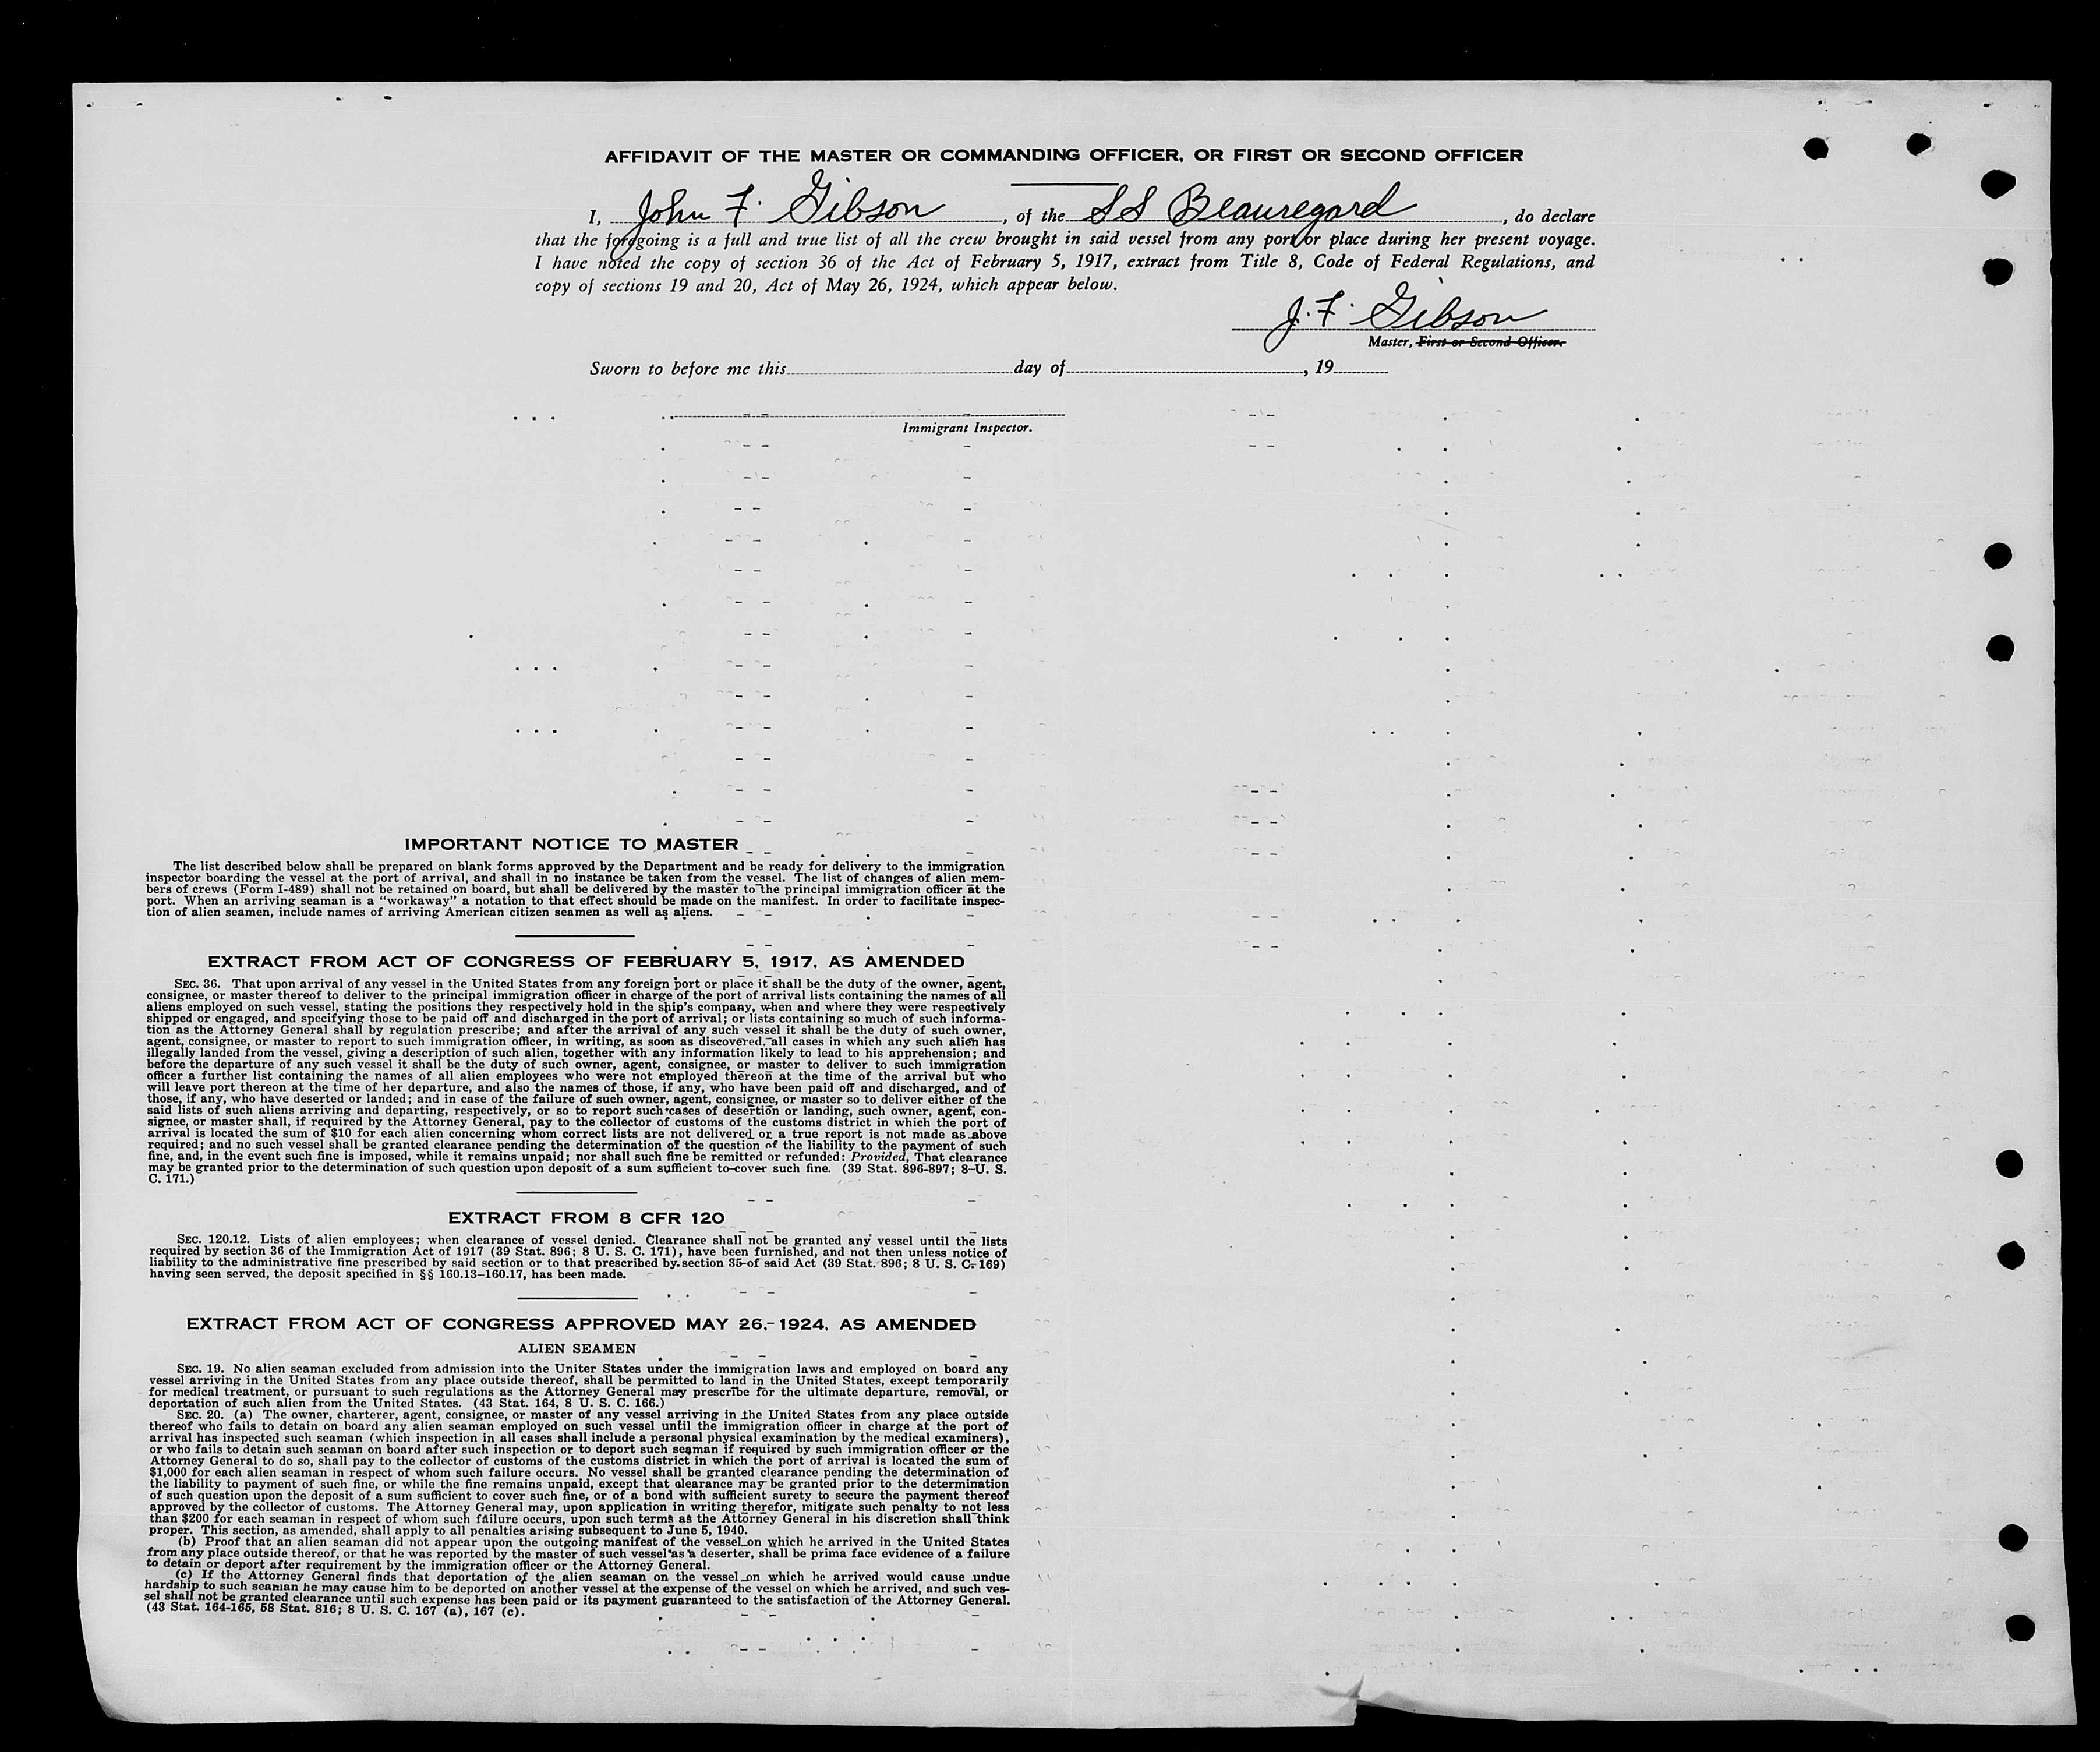 AFFIDAVIT OF THE MASTER OR COMMANDING OFFICER, OR FIRST OR SECOND OFFICER
I, John F. Gibson, of the SS Beauregard, do declare
that the foregoing is a full and true list of all the crew brought in said vessel from any port or place during her present voyage.
I have noted the copy of section 36 of the Act of February 5, 1917, extract from Title 8, Code of Federal Regulations, and
copy of sections 19 and 20, Act of May 26, 1924, which appear below.
J. F. Gibson
Master, First or Second Officer.
Sworn to before me this day of , 19
Immigrant Inspector.
IMPORTANT NOTICE TO MASTER
The list described below shall be prepared on blank forms approved by the Department and be ready for delivery to the immigration
inspector boarding the vessel at the port of arrival, and shall in no instance be taken from the vessel. The list of changes of alien mem-
bers of crews (Form I-489) shall not be retained on board, but shall be delivered by the master to the principal immigration officer at the
port. When an arriving seaman is a "workaway" a notation to that effect should be made on the manifest. In order to facilitate inspec-
tion of alien seamen, include names of arriving American citizen seamen as well as aliens.
EXTRACT FROM ACT OF CONGRESS OF FEBRUARY 5, 1917, AS AMENDED
SEC. 36. That upon arrival of any vessel in the United States from any foreign port or place it shall be the duty of the owner, agent,
consignee, or master thereof to deliver to the principal immigration officer in charge of the port of arrival lists containing the names of all
aliens employed on such vessel, stating the positions they respectively hold in the ship's company, when and where they were respectively
shipped or engaged, and specifying those to be paid off and discharged in the port of arrival; or lists containing so much of such informa-
tion as the Attorney General shall by regulation prescribe; and after the arrival of any such vessel it shall be the duty of such owner,
agent, consignee, or master to report to such immigration officer, in writing, as soon as discovered, all cases in which any such alien has
illegally landed from the vessel, giving a description of such alien, together with any information likely to lead to his apprehension; and
before the departure of any such vessel it shall be the duty of such owner, agent, consignee, or master to deliver to such immigration
officer a further list containing the names of all alien employees who were not employed thereon at the time of the arrival but who
will leave port thereon at the time of her departure, and also the names of those, if any, who have been paid off and discharged, and of
those, if any, who have deserted or landed; and in case of the failure of such owner, agent, consignee, or master so to deliver either of the
said lists of such aliens arriving and departing, respectively, or so to report such cases of desertion or landing, such owner, agent, con-
signee, or master shall, if required by the Attorney General, pay to the collector of customs of the customs district in which the port of
arrival is located the sum of $10 for each alien concerning whom correct lists are not delivered or a true report is not made as above
required; and no such vessel shall be granted clearance pending the determination of the question of the liability to the payment of such
fine, and, in the event such fine is imposed, while it remains unpaid; nor shall such fine be remitted or refunded: Provided, That clearance
may be granted prior to the determination of such question upon deposit of a sum sufficient to cover such fine. (39 Stat. 896-897; 8 U. S.
C. 171.)
EXTRACT FROM 8 CFR 120
SEC. 120.12. Lists of alien employees; when clearance of vessel denied. Clearance shall not be granted any vessel until the lists
required by section 36 of the Immigration Act of 1917 (39 Stat. 896; 8 U. S. C. 171), have been furnished, and not then unless notice of
liability to the administrative fine prescribed by said section or to that prescribed by section 35 of said Act (39 Stat. 896; 8 U. S. C. 169)
having seen served, the deposit specified in §§ 160.13–160.17, has been made.
EXTRACT FROM ACT OF CONGRESS APPROVED MAY 26, 1924, AS AMENDED
ALIEN SEAMEN
SEC. 19. No alien seaman excluded from admission into the Uniter States under the immigration laws and employed on board any
vessel arriving in the United States from any place outside thereof, shall be permitted to land in the United States, except temporarily
for medical treatment, or pursuant to such regulations as the Attorney General may prescribe for the ultimate departure, removal, or
deportation of such alien from the United States. (43 Stat. 164, 8 U. S. C. 166.)
SEC. 20. (a) The owner, charterer, agent, consignee, or master of any vessel arriving in the United States from any place outside
thereof who fails to detain on board any alien seaman employed on such vessel until the immigration officer in charge at the port of
arrival has inspected such seaman (which inspection in all cases shall include a personal physical examination by the medical examiners),
or who fails to detain such seaman on board after such inspection or to deport such seaman if required by such immigration officer or the
Attorney General to do so, shall pay to the collector of customs of the customs district in which the port of arrival is located the sum of
$1,000 for each alien seaman in respect of whom such failure occurs. No vessel shall be granted clearance pending the determination of
the liability to payment of such fine, or while the fine remains unpaid, except that clearance may be granted prior to the determination
of such question upon the deposit of a sum sufficient to cover such fine, or of a bond with sufficient surety to secure the payment thereof
approved by the collector of customs. The Attorney General may, upon application in writing therefor, mitigate such penalty to not less
than $200 for each seaman in respect of whom such failure occurs, upon such terms as the Attorney General in his discretion shall think
proper. This section, as amended, shall apply to all penalties arising subsequent to June 5, 1940.
(b) Proof that an alien seaman did not appear upon the outgoing manifest of the vessel on which he arrived in the United States
from any place outside thereof, or that he was reported by the master of such vessel as a deserter, shall be prima face evidence of a failure
to detain or deport after requirement by the immigration officer or the Attorney General.
(c) If the Attorney General finds that deportation of the alien seaman on the vessel on which he arrived would cause undue
hardship to such seaman he may cause him to be deported on another vessel at the expense of the vessel on which he arrived, and such ves-
sel shall not be granted clearance until such expense has been paid or its payment guaranteed to the satisfaction of the Attorney General.
(43 Stat. 164-165, 58 Stat. 816; 8 U. S. C. 167 (a), 167 (c).